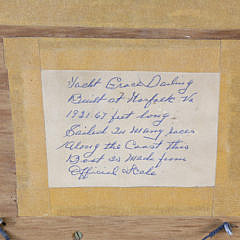 Yacht Grace Darling
Built at Norfolk Va
1921. 67 feet long.
Sailed In Many races
Along the Coast this
Boat Is Made from
Official Scale